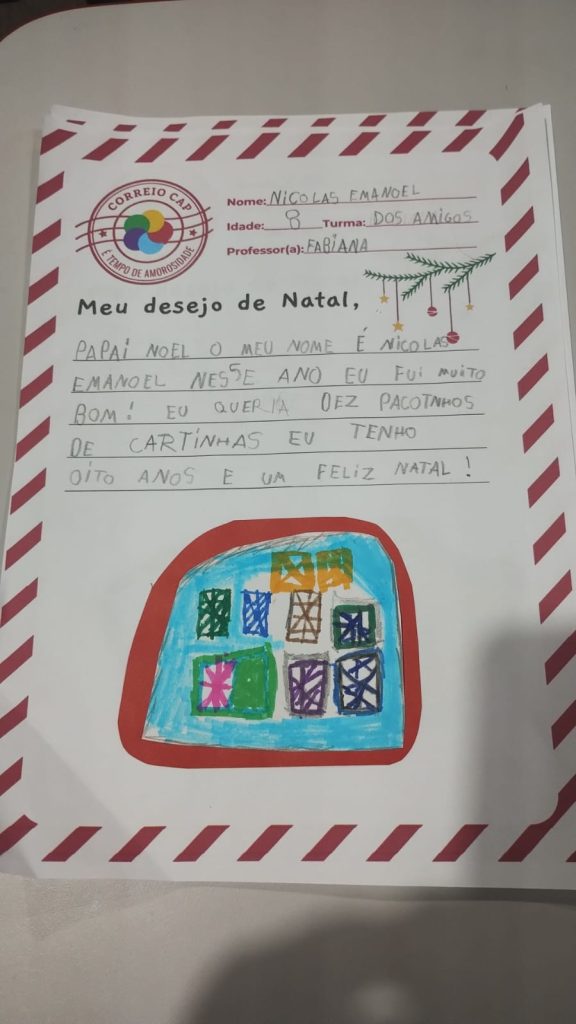 CORREIO CAP
É TEMPO DE AMOROSIDADE
Nome: NICOLAS EMANOEL
Idade: 8 Turma: DOS AMIGOS
Professor(a): FABIANA
Meu desejo de Natal,
PAPAI NOEL O MEU NOME É NICOLAS
EMANOEL NESSE ANO EU FUI MUITO
BOM! EU QUERIA DEZ PACOTNHOS
DE CARTINHAS EU TENHO
OITO ANOS E UM FELIZ NATAL!